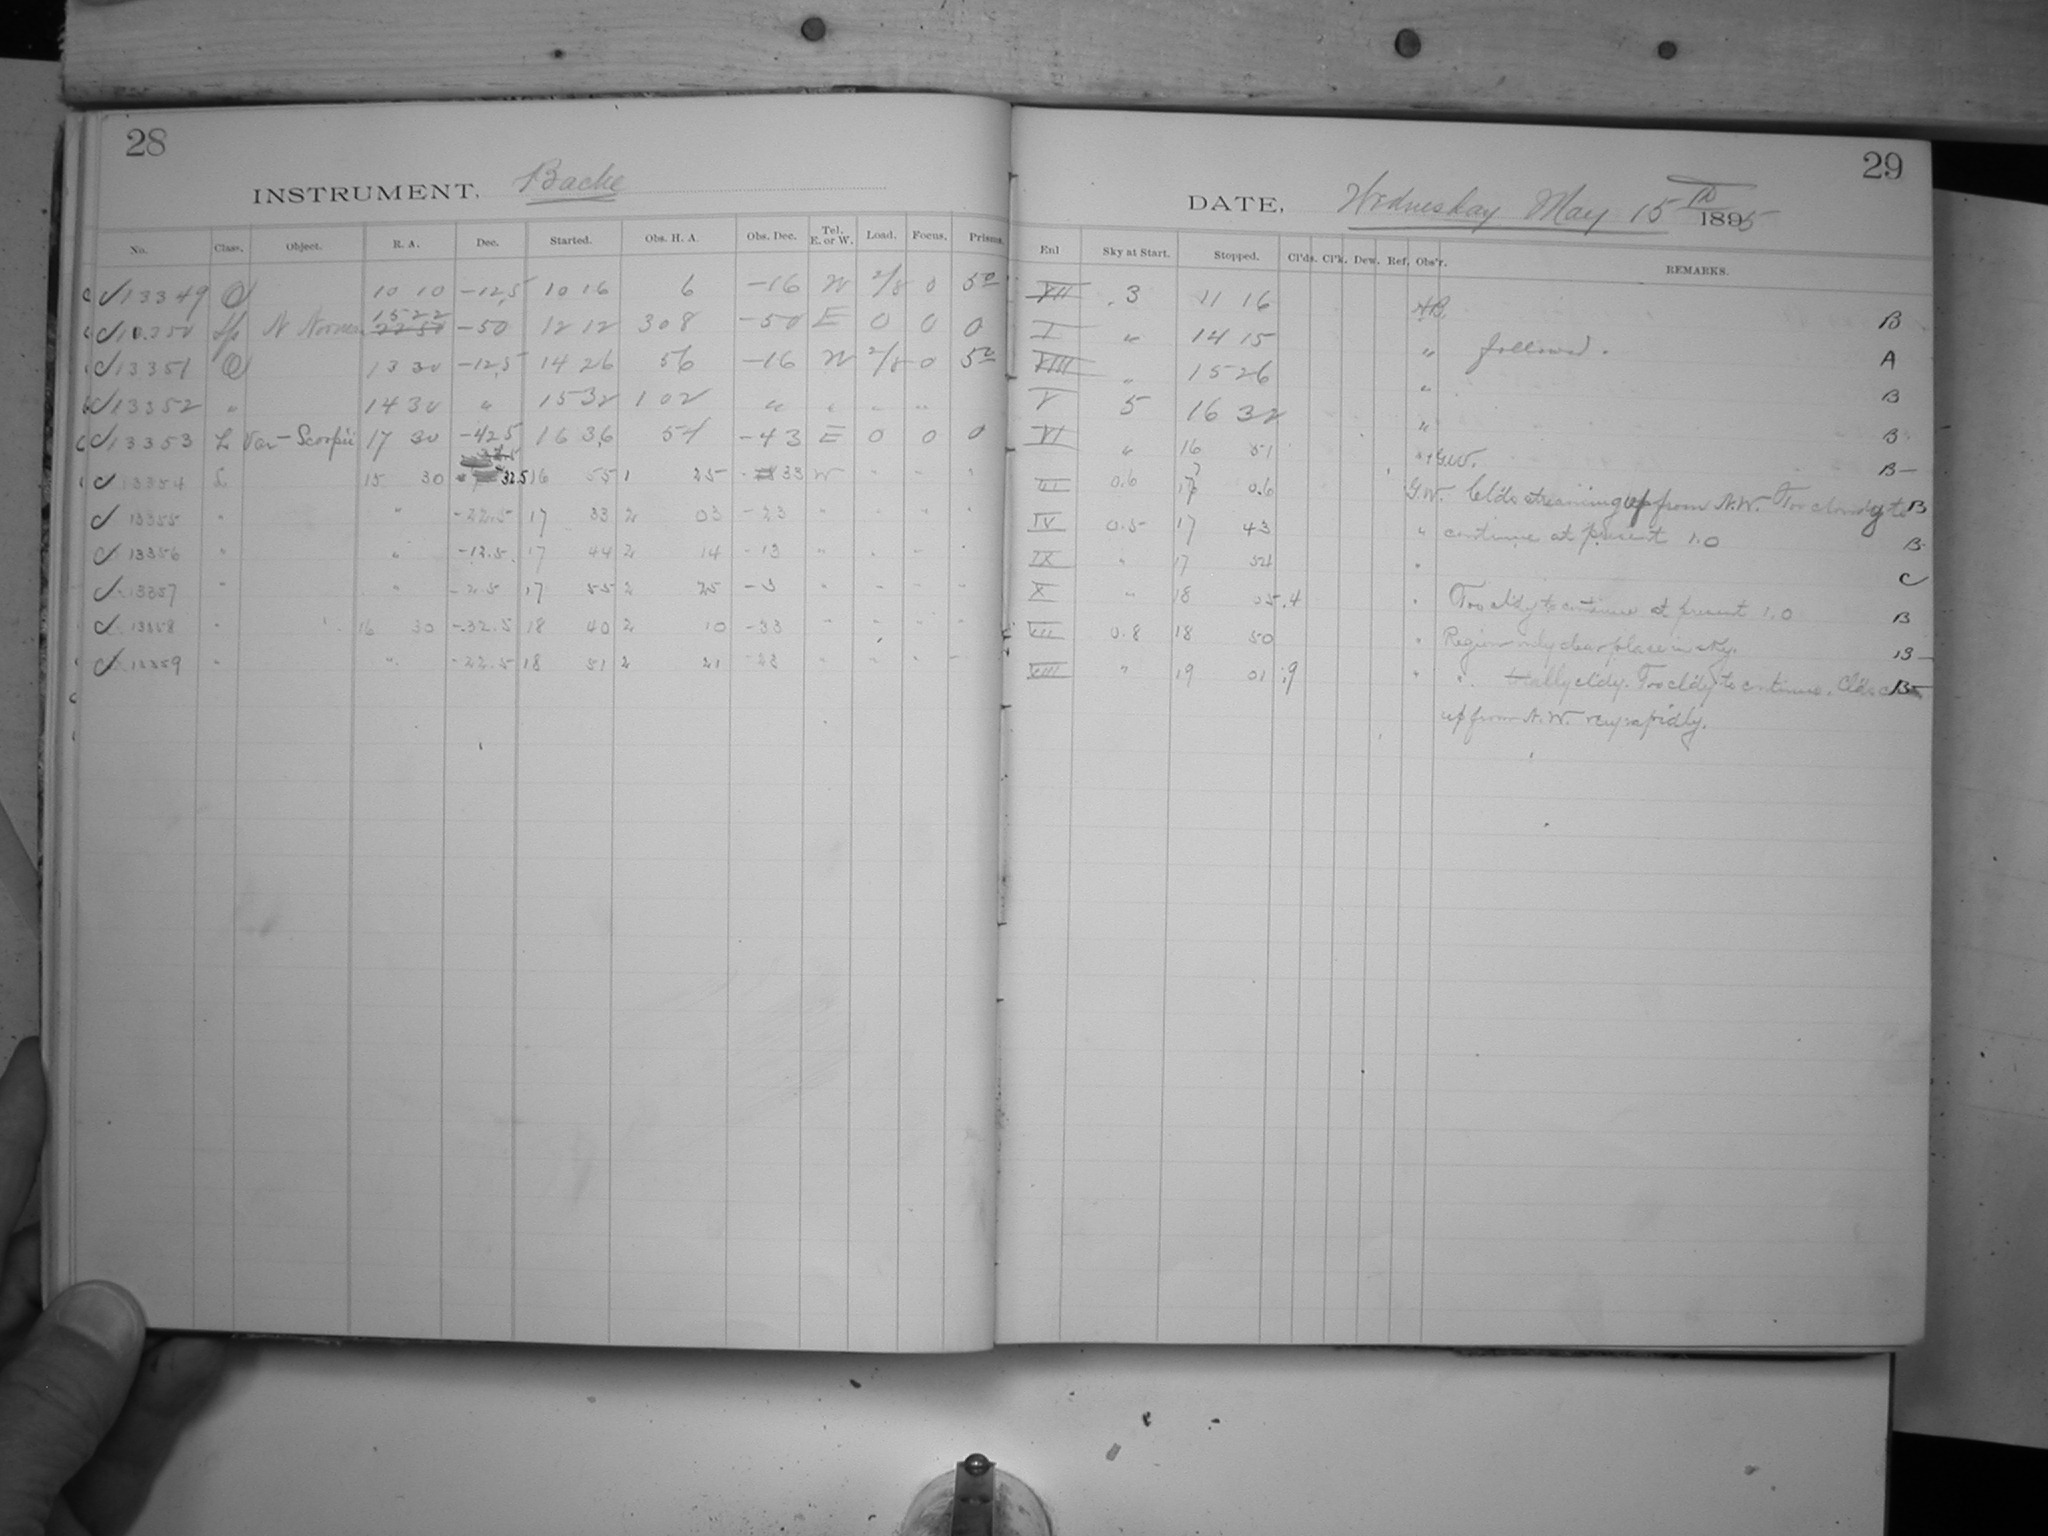 28
INSTRUMENT, Bache
No. Class. Object. R. A. Dec. Started. Obs. H. A. Obs. Dec. Tel. E. or W. Load. Focus. Prisms.
13349 10 10 -12.5 10 16 6 -16 W 2/8 0 5
Sp N Normae 15 22 -50 12 12 308 -50 E 0 0 0
13351 13 30 -12.5 14 26 56 -16 W 2/8 0 5
13352 " 14 30 " 15 32 1 02 " " " "
13353 L Var-Scorpii 17 30 -42.5 16 36 51 -43 E 0 0 0
13354 L 15 30 32.5 16 55 1 25 -33 W " " "
13355 " " -22.5 17 33 2 03 -23 " " " "
13356 " " -12.5 17 44 2 14 -13 " " " "
13357 " " -2.5 17 55 2 25 -3 " " " "
13358 " 16 30 -32.5 18 40 2 10 -33 " " " "
13359 " " -22.5 18 51 2 21 -23 " " " "
29
DATE, Wednesday May 15th 1895
Enl Sky at Start. Stopped. Cl'ds. Cl'k. Dew. Ref. Obs'r. REMARKS.
VII .3 11 16 B
I " 14 15 " followed. A
VIII " 15 26 " B
V 5 16 32 " B
VI " 16 51 " G.W. B
III 0.6 17 06 G.W. Clds streaming up from N.W. Too cloudy to B
IV 0.5 17 43 " continue at present 1.0 B
IX " 17 54 " C
X " 18 05 .4 " Too cldy to continue at present 1.0 B
VII 0.8 18 50 " Region only clear place in sky. B
VIII " 19 01 .9 " " totally cldy. Too cldy to continue. Clds B
up from N.W. very rapidly.